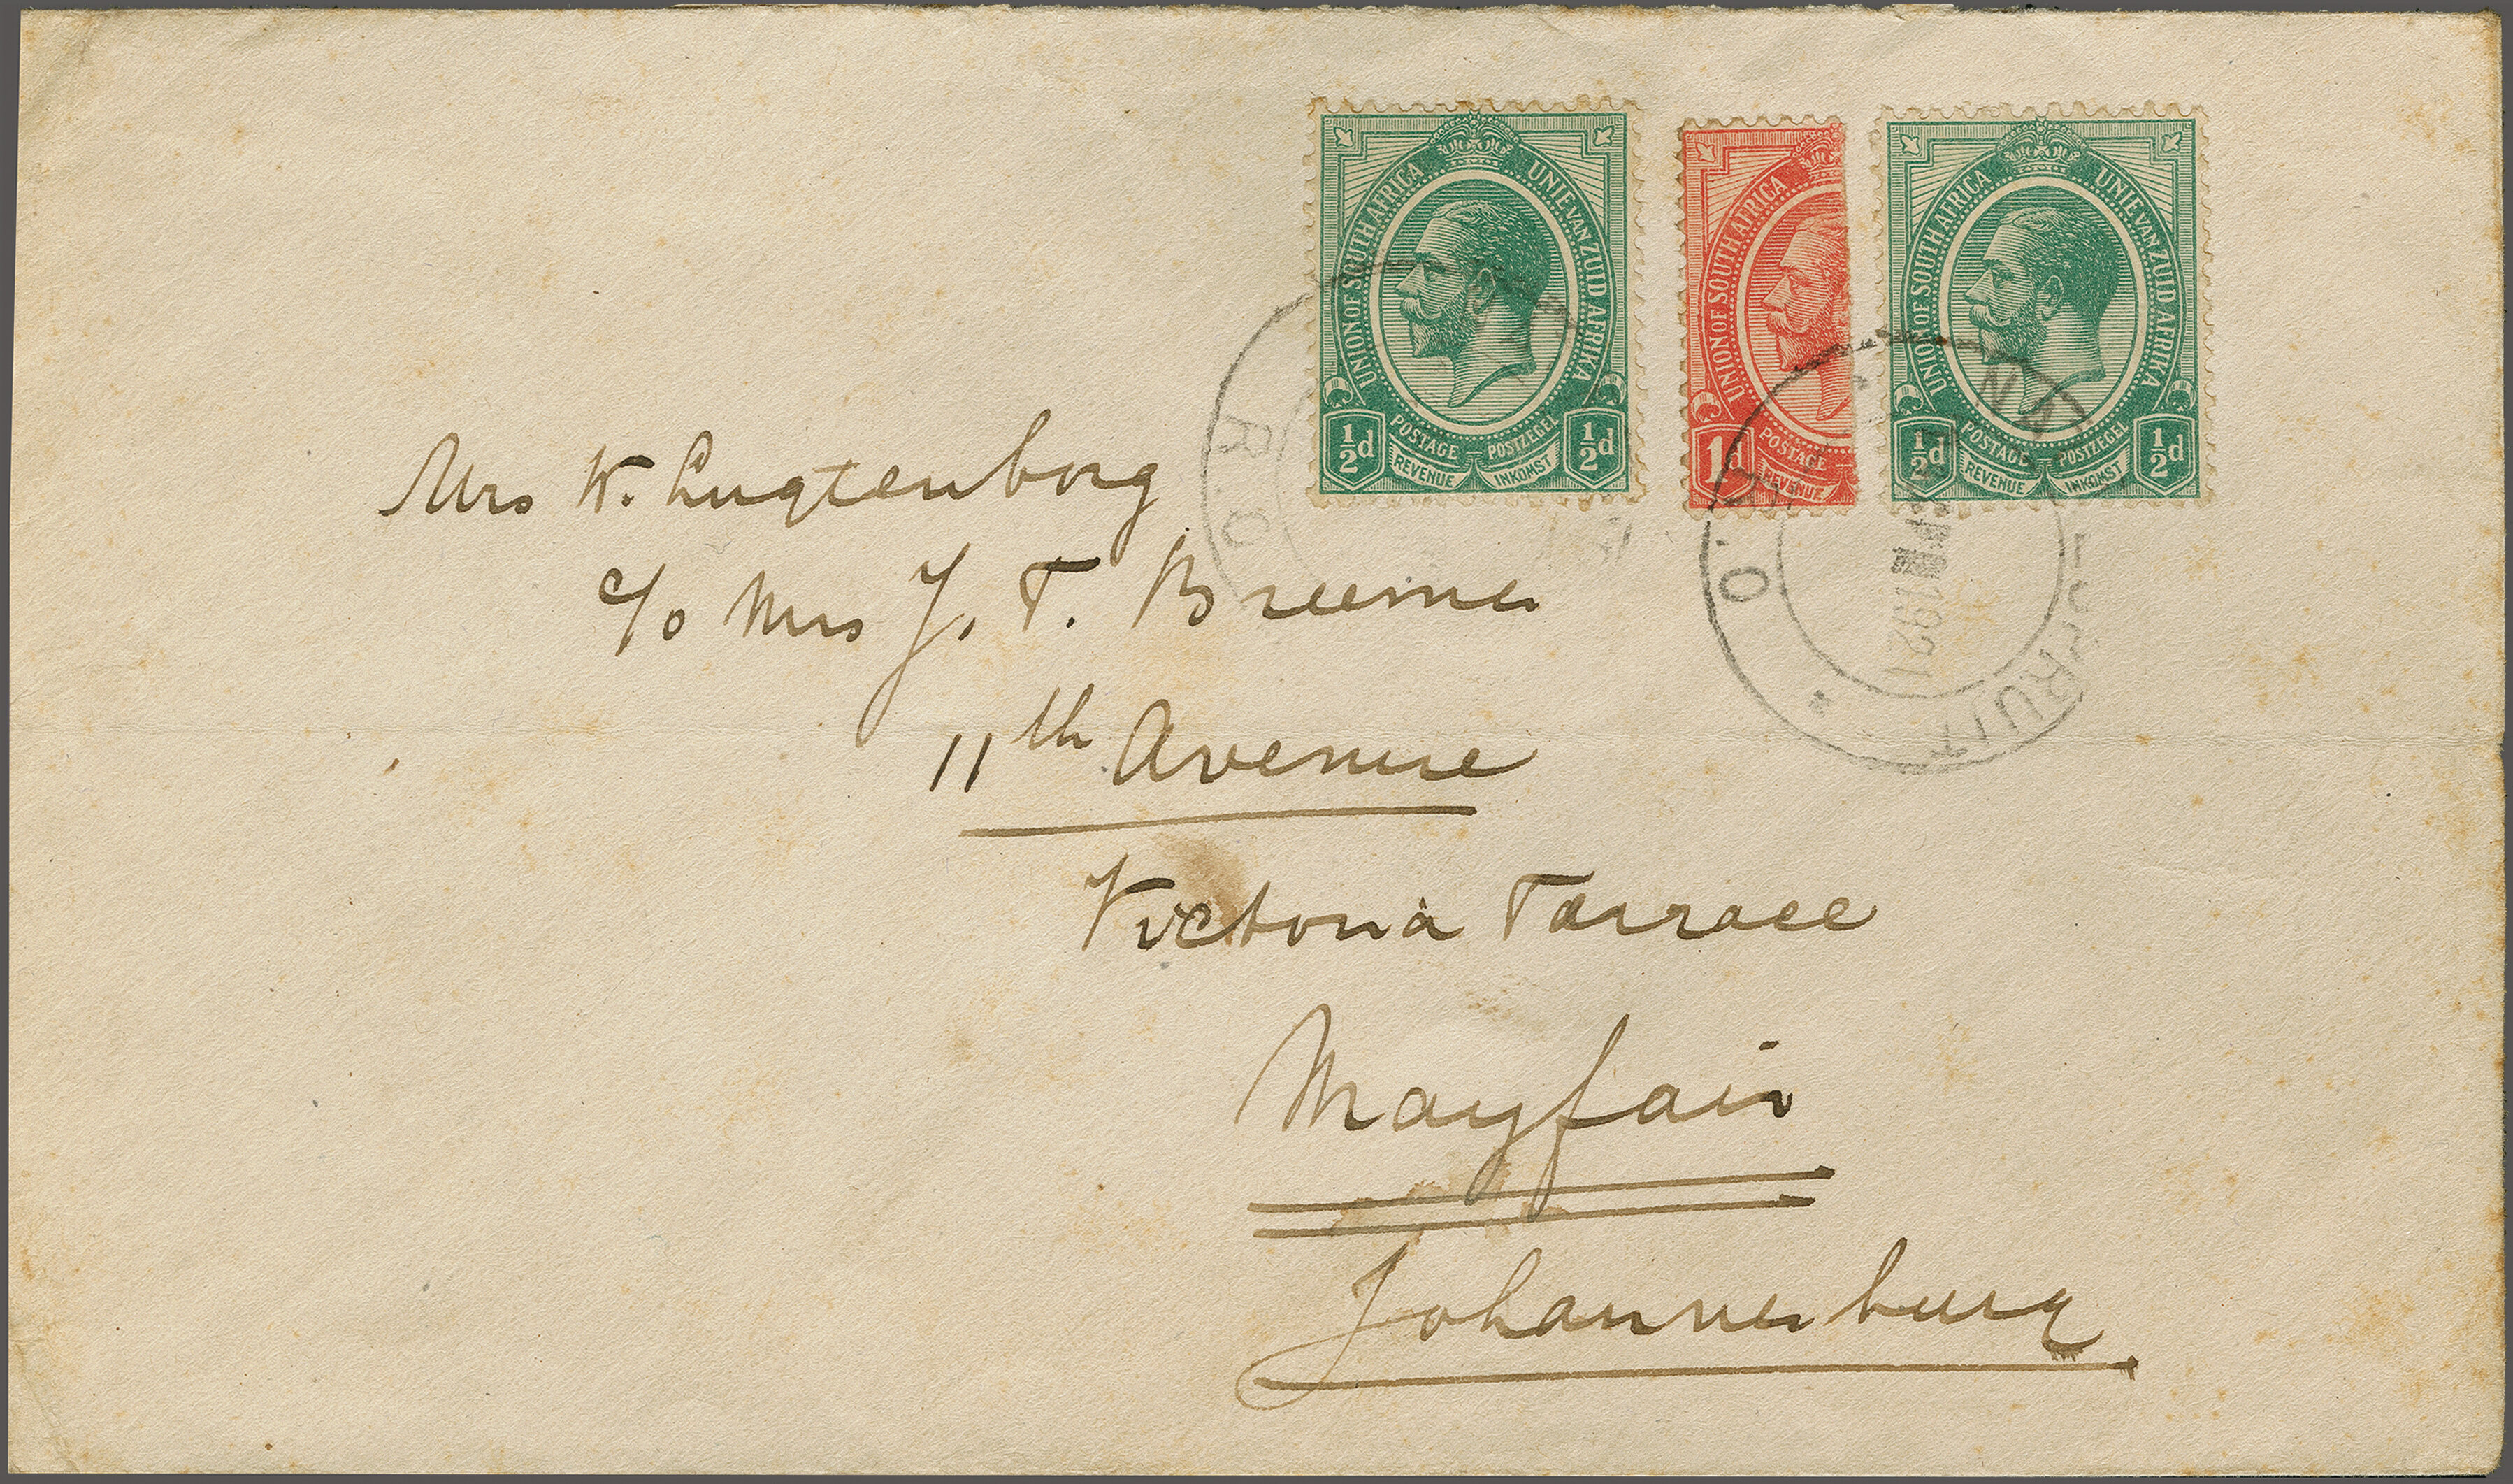 UNION OF SOUTH AFRICA UNIE VAN ZUID AFRIKA
½d POSTAGE POSTZEGEL ½d
REVENUE INKOMST
UNION OF SOUTH AFRICA
1d POSTAGE
REVENUE
UNION OF SOUTH AFRICA UNIE VAN ZUID AFRIKA
½d POSTAGE POSTZEGEL ½d
REVENUE INKOMST
1921
Mrs K. Lugtenborg
c/o Mrs J. T. Breemer
11th Avenue
Victoria Tarrace
Mayfair
Johannesburg